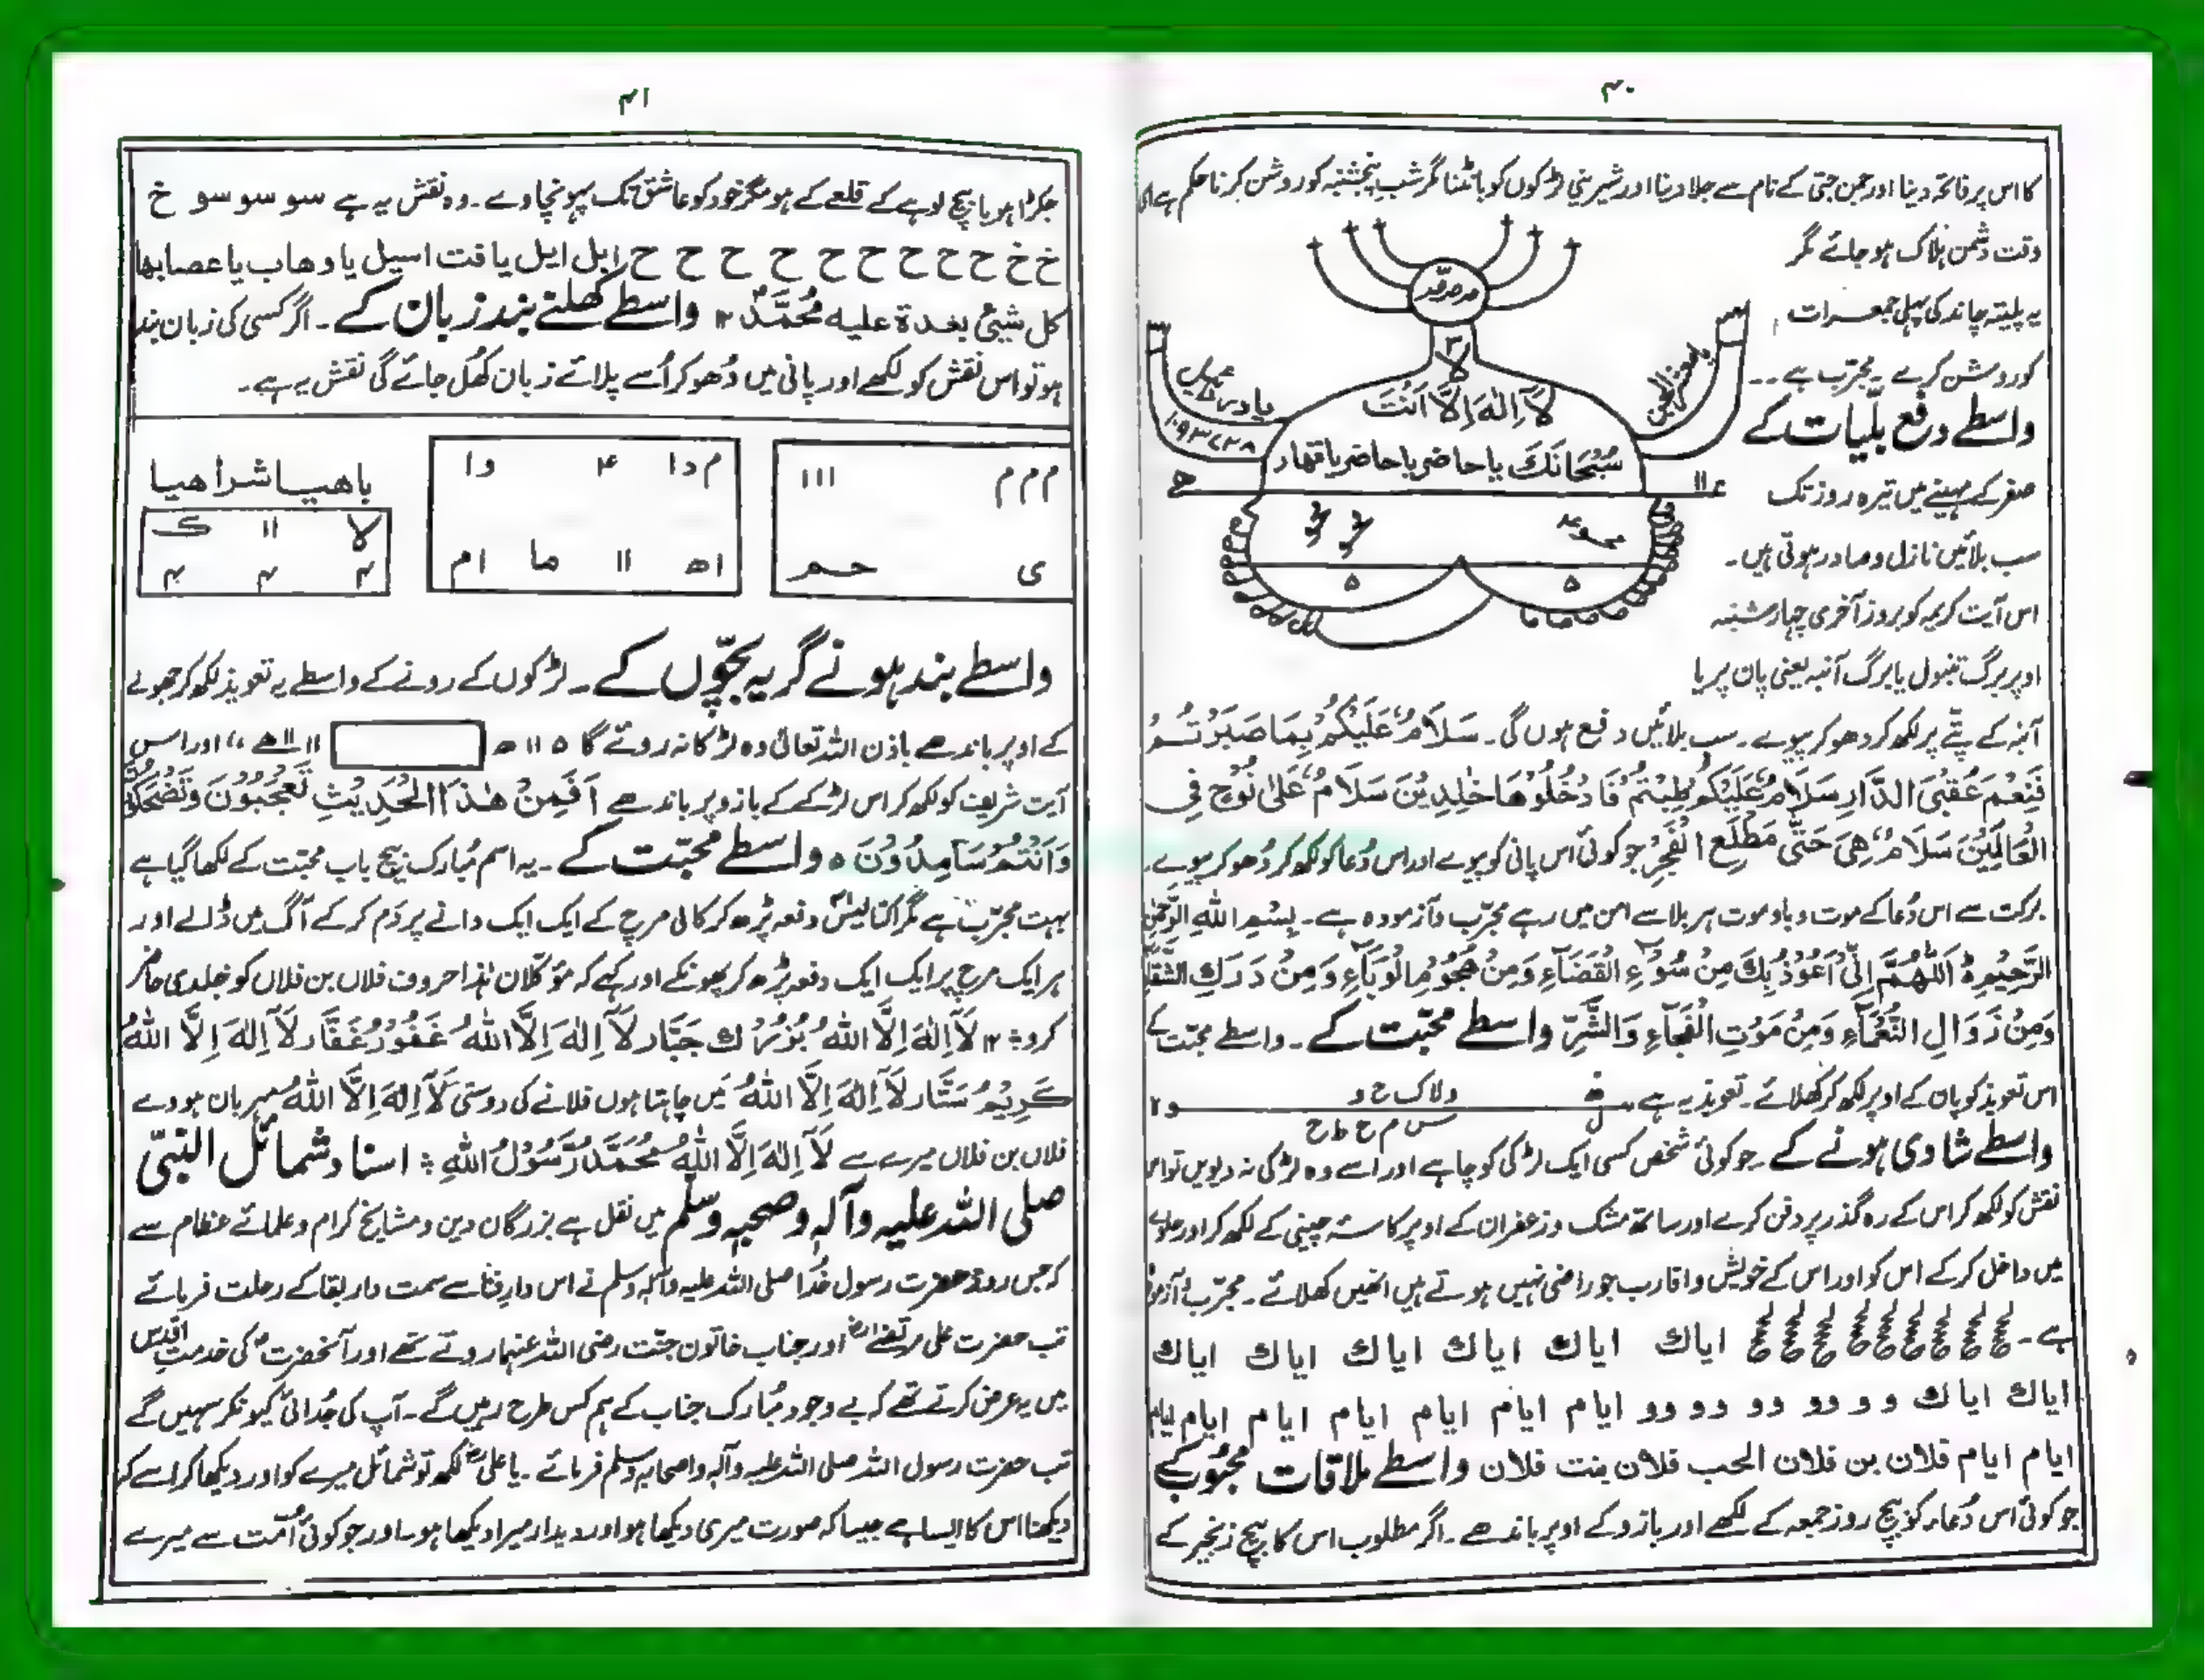 ۴۰
کا اس پر فاتحہ دینا اور جن جتی کے نام سے جلا دینا اور شیرینی لڑکوں کو بانٹنا مگر شب پنجشنبہ کو روشن کرنا حکم ہے اسی
وقت دشمن ہلاک ہو جائے مگر
یہ پلیتہ چاند کی پہلی جمعرات
کو روشن کرے ۔ مجرّب ہے ۔۔
واسطے دفع بلّیات کے
صفر کے مہینے میں تیرہ روز تک
سب بلائیں نازل و صادر ہوتی ہیں۔
اس آیت کریمہ کو بروز آخری چہار شنبہ
اوپر برگ تنبول یا برگ آنبہ یعنی پان پر یا
لَآ اِلٰهَ اِلَّا اَنْتَ
سُبْحَانَكَ یا حاضر یا حاضر یا قهار
۵ ۵
آنبہ کے پتّے پر لکھ کر دھو کر پیوے۔ سب بلائیں دفع ہوں گی۔ سَلَامٌ عَلَيْكُمْ بِمَا صَبَرْتُمْ
فَنِعْمَ عُقْبَى الدَّارِ سَلَامٌ عَلَيْكُمْ طِبْتُمْ فَادْخُلُوْهَا خٰلِدِيْنَ سَلَامٌ عَلٰى نُوْحٍ فِى
الْعَالَمِيْنَ سَلَامٌ هِىَ حَتّٰى مَطْلَعِ الْفَجْرِ جو کوئی اس پانی کو پیوے اور اس دُعا کو لکھ کر دُھو کر پیوے۔
برکت سے اس دُعا کے موت و باد موت ہر بلا سے امن میں رہے مجرّب و آزمودہ ہے۔ بِسْمِ اللهِ الرَّحْمٰنِ
الرَّحِيْمِ ۝ اَللّٰهُمَّ اِنِّىْ اَعُوْذُ بِكَ مِنْ سُوْٓءِ الْقَضَآءِ وَمِنْ هُجُوْمِ الْوَبَآءِ وَمِنْ دَرَكِ الشَّقَآءِ
وَمِنْ زَوَالِ النَّعْمَآءِ وَمِنْ مَوْتِ الْفُجَآءِ وَالشَّرِّ واسطے محبّت کے ۔ واسطے محبّت کے
اس تعویذ کو پان کے اوپر لکھ کر کھلائے۔ تعویذ یہ ہے
واسطے شادی ہونے کے ۔ جو کوئی شخص کسی ایک لڑکی کو چاہے اور اسے وہ لڑکی نہ دیویں تو اس
نقش کو لکھ کر اس کے رہ گذر پر دفن کرے اور ساتھ مشک و زعفران کے اوپر کاسۂ چینی کے لکھ کر اور حلوے
میں داخل کر کے اس کو اور اس کے خویش و اقارب جو راضی نہیں ہوتے ہیں انھیں کھلائے۔ مجرّب و آزمودہ
ہے۔ ایاك ایاك ایاك ایاك ایاك ایاك ایاك ایاك ایاك
ایاك ایاك و و وو وو وو وو ایام ایام ایام ایام ایام ایام ایام ایام
ایام ایام فلان بن فلان الحب فلان بنت فلان واسطے ملاقات محبُوب کے
جو کوئی اس دُعاء کو بیچ روز جمعہ کے لکھے اور بازو کے اوپر باندھے۔ اگر مطلوب اس کا بیچ زنجیر کے
۴۱
جکڑا ہو یا بیچ لوہے کے قلعے کے ہو مگر خود کو عاشق تک پہونچاوے۔ وہ نقش یہ ہے سو سو سو سو خ
خ خ ح ح ح ح ح ح ح ح ح ابل ایل یا قت اسیل یا وهاب یا عصابها
کل شیئ بعدة علیه مُحَمَّدٌ ۱۲ واسطے کھلنے بند زبان کے ۔ اگر کسی کی زبان بند
ہو تو اس نقش کو لکھے اور پانی میں دُھو کر اُسے پلائے زبان کُھل جائے گی نقش یہ ہے۔
م م م ااا
ی حـم
م دا ۴ وا
اھ اا ما ام
باهیا شراهیا
لا اا ک
۴ ۴ ۴
واسطے بند ہونے گریہ بچّوں کے۔ لڑکوں کے رونے کے واسطے یہ تعویذ لکھ کر جھولے
کے اوپر باندھے باذن اللہ تعالیٰ وہ لڑکا نہ روئے گا ۵ اا ھ اا اور اس
آیت شریف کو لکھ کر اس لڑکے کے بازو پر باندھے اَفَمِنْ هٰذَا الْحَدِيْثِ تَعْجَبُوْنَ وَتَضْحَكُوْنَ
وَاَنْتُمْ سَامِدُوْنَ ۵ واسطے محبّت کے ۔ یہ اسم مُبارک بیچ باب محبّت کے لکھا گیا ہے
بہت مجرّب ہے مگر اکتالیس دفعہ پڑھ کر کالی مرچ کے ایک ایک دانے پر دَم کر کے آگ میں ڈالے اور
ہر ایک مرچ پر ایک ایک دفعہ پڑھ کر پھونکے اور کہے کہ مؤکلان ہٰذا حروف فلاں بن فلاں کو جلدی حاضر
کرو ۱۲ لَآ اِلٰهَ اِلَّا اللهُ بُزُرْك جَبَّار لَآ اِلٰهَ اِلَّا اللهُ غَفُوْرُ غَفَّار لَآ اِلٰهَ اِلَّا اللهُ
كَرِيْمُ سَتَّار لَآ اِلٰهَ اِلَّا اللهُ مَیں چاہتا ہوں فلانے کی دوستی لَآ اِلٰهَ اِلَّا اللهُ مہربان ہووے
فلاں بن فلاں میرے سے لَآ اِلٰهَ اِلَّا اللهُ مُحَمَّدٌ رَّسُوْلُ اللهِ ؛ اسناد شمائل النبیّ
صلی اللہ علیہ وآلہٖ وصحبہٖ وسلّم میں نقل ہے بزرگان دین و مشایخ کرام و علمائے عظام سے
کہ جس روز حضرت رسول خُدا صلی اللہ علیہ وآلہٖ وسلم نے اس دارِ فنا سے سمت دار بقا کے رحلت فرمائے
تب حضرت علی مرتضےٰ رضؓ اور جناب خاتون جنّت رضی اللہ عنہا روتے تھے اور آنحضرت کی خدمت اقدس
میں یہ عرض کرتے تھے کہ بے وجود مُبارک جناب کے ہم کس طرح رہیں گے۔ آپ کی جُدائی کیونکر سہیں گے
تب حضرت رسول اللہ صلی اللہ علیہ وآلہٖ واصحابہٖ وسلم فرمائے۔ یا علی رضؓ لکھ تو شمائل میرے کو اور دیکھا کر اسے کہ
دیکھنا اس کا ایسا ہے جیسا کہ صورت میری دیکھا ہو اور دیدار میرا دیکھا ہو اور جو کوئی اُمّت سے میرے